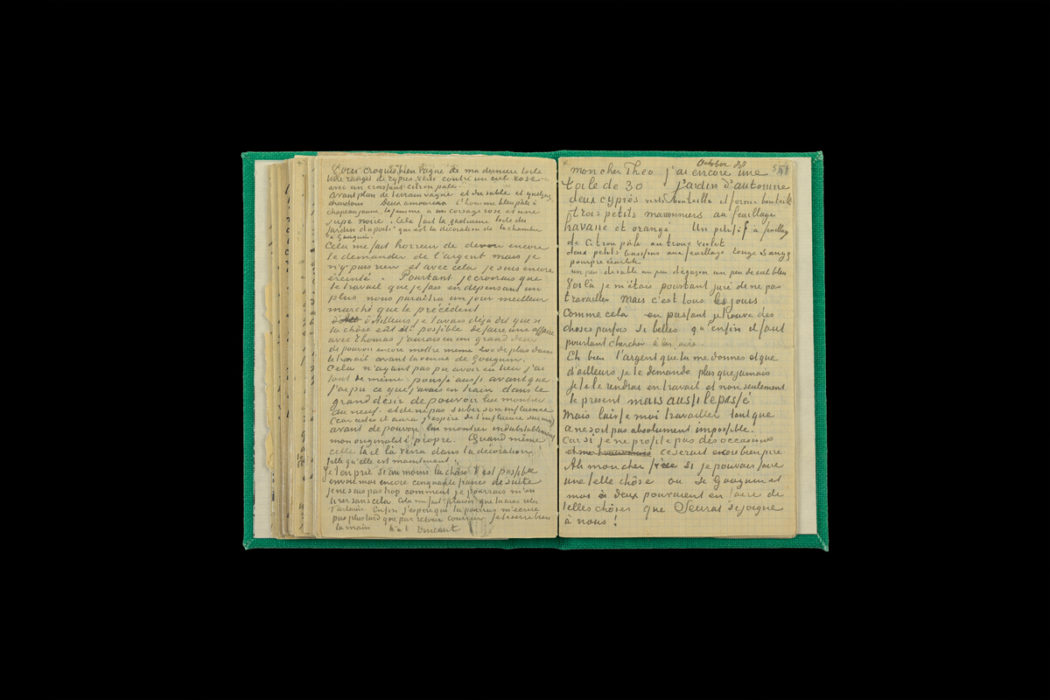 Voici croquis bien vague de ma dernière toile
une rangée de cyprès verts contre un ciel rose
avec un croissant citron pâle.
Avant plan de terrain vague et du sable et quelques
chardons Deux amoureux l'homme bleu pâle à
chapeau jaune la femme a un corsage rose et une
jupe noire. Cela fait la quatrième toile du
jardin du poète qui est la décoration de la chambre
à Gauguin.
Cela me fait horreur de devoir encore
te demander de l'argent mais je
n'y puis rien et avec cela je suis encore
éreinté. Pourtant je crois que
le travail que je fais en dépensant un
plus nous paraîtra un jour meilleur
marché que le précédent
d'ailleurs je t'avais déjà dit que si
la chôse eût été possible de faire une affaire
avec Thomas j'aurais eu un grand désir
de pouvoir encore mettre même 200 de plus dans
le travail avant la venue de Gauguin.
Cela n'ayant pas pu avoir eu lieu j'ai
tout de même poussé aussi avant que
j'ai pu ce que j'avais en train dans le
grand désir de pouvoir lui montrer
du neuf. et de ne pas subir son influence
(car certes il aura j'espère de l'influence sur moi)
avant de pouvoir lui montrer indubitablement
mon originalité propre. Quand même
celle là il la verra dans la décoration
telle qu'elle est maintenant.
Je t'en prie si au moins la chôse t'est possible
envoie moi encore cinquante francs de suite
je ne sais pas trop comment je pourrais m'en
tirer sans cela Cela me fait plaisir que tu aies relu
Tartarin Enfin j'espère que tu pourras m'écrire
pas plus tard que par retour courrier je te serre bien
la main t. à t. Vincent
October 88
mon cher Theo j'ai encore une
toile de 30 Jardin d'automne
deux cyprès verts bouteille et forme bouteille
trois petits marronniers au feuillage
havane et orangé Un petit if à feuillage
de citron pâle au tronc violet
deux petits buissons au feuillage rouge sang &
pourpre écarlate
un peu de sable un peu de gazon un peu de ciel bleu
Voilà je m'étais pourtant juré de ne pas
travailler Mais c'est tous les jours
comme cela en passant je trouve des
choses parfois si belles qu'enfin il faut
pourtant chercher à les faire.
Eh bien l'argent que tu me donnes et que
d'ailleurs je te demande plus que jamais
je te le rendrai en travail et non seulement
le présent mais aussi le passé
Mais laisse moi travailler tout que
a ne soit pas absolument impossible.
Car si je ne profite pas des occasions
ce serait encore bien pire
Ah mon cher si je pouvais faire
une telle chôse ou si Gauguin et
moi à deux pouvaient en faire de
telles chôses que Seurat se joigne
à nous!